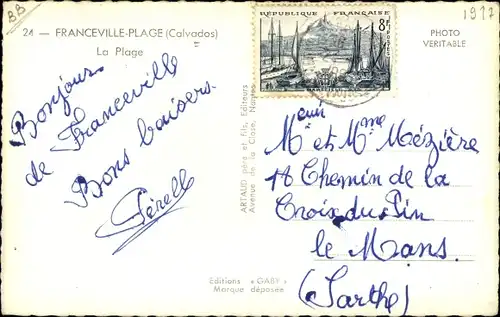 BB
24 — FRANCEVILLE-PLAGE (Calvados)
La Plage
Bonjour
de Franceville
Bons baisers
ARTAUD père et fils, Editeurs
Avenue de la Close, Nantes
Editions « GABY »
Marque déposée
RÉPUBLIQUE FRANÇAISE
8F
POSTES
MARSEILLE
PHOTO
VERITABLE
Mr et Mme Mézière
18 Chemin de la
Croix du Pin
le Mans.
(Sarthe)